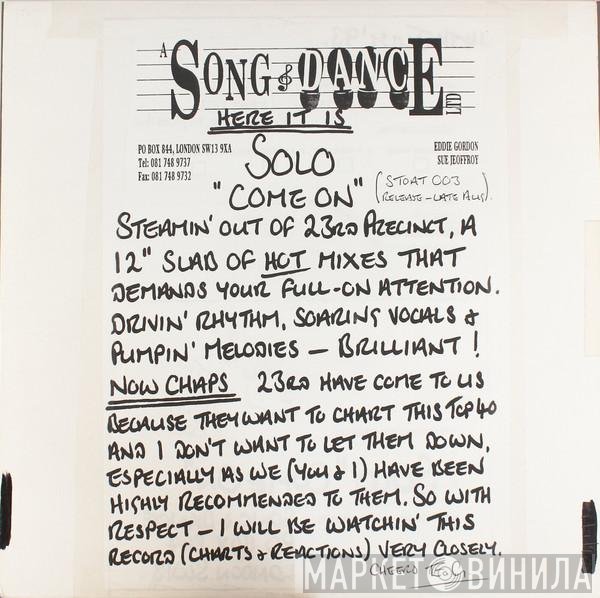 A SONG & DANCE LTD
HERE IT IS
PO BOX 844, LONDON SW13 9XA
Tel: 081 748 9737
Fax: 081 748 9732
EDDIE GORDON
SUE JEOFFROY
SOLO
"COME ON"
(STOAT 003
RELEASE - LATE AUG).
STEAMIN' OUT OF 23RD PRECINCT, A
12" SLAB OF HOT MIXES THAT
DEMANDS YOUR FULL-ON ATTENTION.
DRIVIN' RHYTHM, SOARING VOCALS &
PUMPIN' MELODIES – BRILLIANT!
NOW CHAPS 23RD HAVE COME TO US
BECAUSE THEY WANT TO CHART THIS TOP 40
AND I DON'T WANT TO LET THEM DOWN,
ESPECIALLY AS WE (YOU & I) HAVE BEEN
HIGHLY RECOMMENDED TO THEM. SO WITH
RESPECT – I WILL BE WATCHIN' THIS
RECORD (CHARTS & REACTIONS) VERY CLOSELY.
CHEERS
МАРКЕТ ВИНИЛА